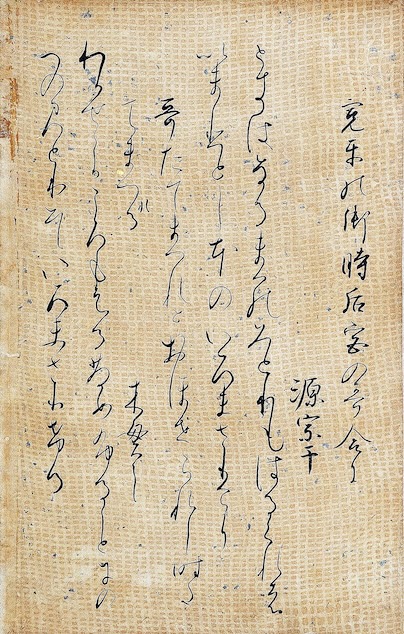 寛平の御時后宮の哥合に
源宗于
ときはなるまつのみとりもはるくれは
いまひとしほのいろまさりけり
哥たてまつれとおほせられし時に
わかせこかころもはるさめふることに
のへのみとりそいろまさりける